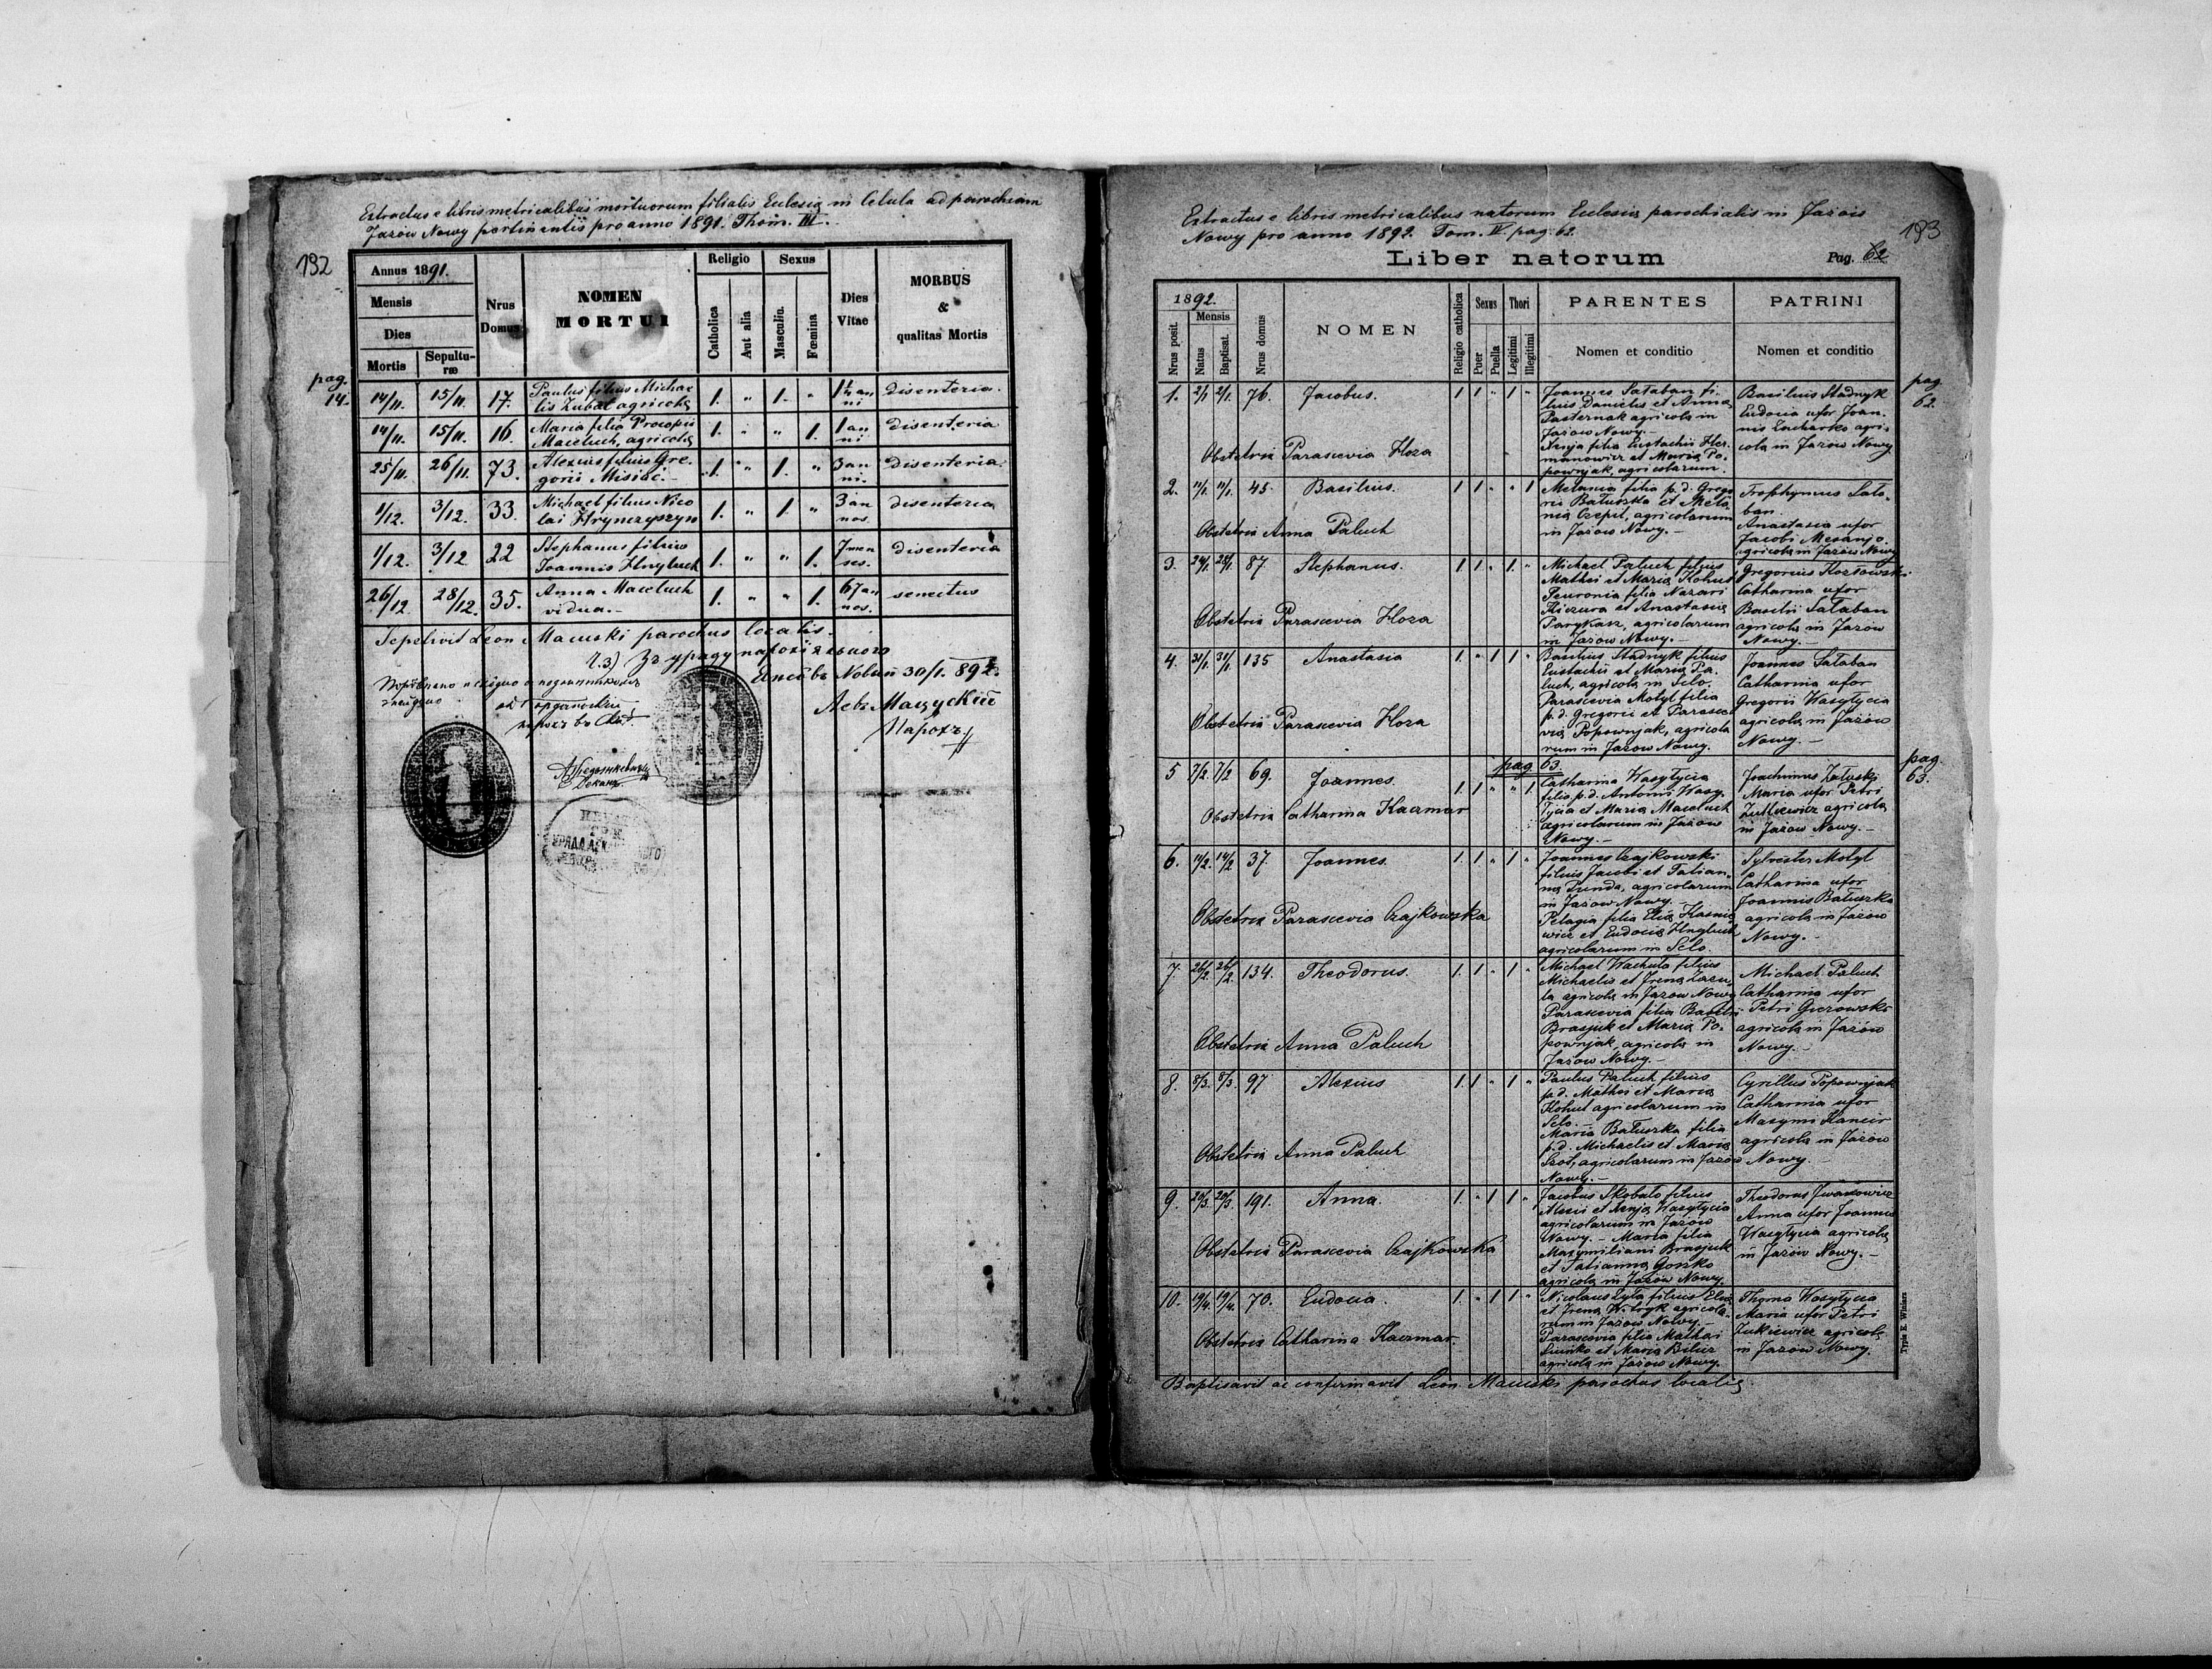 192
Extractus e libris metricalibus mortuorum filialis Eclesiæ in Cetula ad parochiam
Jazów Nowy pertinentis pro anno 1891. Thom. III.
Annus 1891.
Mensis
Dies
Mortis
Sepulturæ
Nrus Domus
NOMEN MORTUI
Religio
Catholica
Aut alia
Sexus
Masculin.
Fœmina
Dies Vitae
MORBUS & qualitas Mortis
pag. 14.
14/11. 15/11. 17. Paulus filius Michae 1. " 1. " 1½ an disenteria.
lis Zubal agricolæ ni
14/11. 15/11. 16. Maria filia Procopii 1. " " 1. 1 an disenteria
Maceluch, agricolæ ni
25/11. 26/11. 73. Alexius filius Gre 1. " 1. " 3 an disenteria
gorii Misiać. ni.
1/12. 3/12. 33. Michael filius Nico 1. " 1. " 3 an disenteria
lai Hrynczyszyn nos.
1/12. 3/12 22 Stephanus filius 1. " " 1. 7 men disenteria
Joannis Hnyluch ses.
26/12. 28/12. 35. Anna Maceluch 1. " " 1. 67 an senectus
vidua. nos.
Sepelivit Leon Macuski parochus localis.
Ч.3) Зъ уряду парохіяльного
Язôвъ Новый 30/1. 892.
Левъ Мацускій
Парохъ
Деканъ
193
Extractus e libris metricalibus natorum Eclesiæ parochialis in Jazów
Nowy pro anno 1892. Tom. IV. pag. 62.
Liber natorum
Pag. 62
1892.
Nrus posit.
Mensis
Natus
Baptisat.
Nrus domus
NOMEN
Religio catholica
Sexus
Puer
Puella
Thori
Legitimi
Illegitimi
PARENTES
Nomen et conditio
PATRINI
Nomen et conditio
pag. 62.
1. 2/1 2/1. 76. Jacobus. 1 1 " 1 "
Obstetrix Parascevia Hoza
Joannes Sałaban fi-
lius Danielis et Anna
Pasternak agricolæ in
Jazow Nowy.
Xenja filia Eustachii Her-
manowicz et Maria Po-
pownjak, agricolarum.
Basilius Stadnyk
Eudocia uxor Joan-
nis Zacharko agri-
colæ in Jazow Nowy
2. 11/1. 11/1. 45. Basilius. 1 1 " " 1
Obstetrix Anna Paluch
Melania filia p.d. Grego
rii Batuszka et Mela
nia Czepil, agricolarum
in Jazow Nowy.
Trophymus Sała-
ban.
Anastasia uxor
Jacobi Mesanjo
agricolæ in Jazów Nowy
3. 24/1. 24/1. 87 Stephanus. 1 1 " 1. "
Obstetrix Parascevia Hoza
Michael Paluch filius
Mathei et Mariæ Kohut
Feuronia filia Nazari
Kiczura et Anastasiæ
Parykasz, agricolarum
in Jazow Nowy.
Gregorius Kozłowski
Catharina uxor
Basilii Sałaban
agricolæ in Jazów
Nowy.
4. 31/1. 31/1. 135 Anastasia 1. " 1 1 "
Obstetrix Parascevia Hoza
Basilius Stadnyk filius
Eustachii et Maria Pa-
luch, agricolæ in Selo.
Parascevia Motyl filia
p.d. Gregorii et Parasce
via Popownjak, agricola
rum in Jazow Nowy.
Joannes Sałaban
Catharina uxor
Gregorii Wasylycia
agricolæ in Jazów
Nowy.
pag. 63.
pag. 63.
5 7/2. 7/2 69. Joannes. 1. 1 " " 1.
Obstetrix Catharina Kaczmar
Catharina Wasylycia
filia p.d. Antonii Wasy-
lycia et Maria Maceluch
agricolarum in Jazow
Nowy.
Joachimus Załuski
Maria uxor Petri
Zutkiewicz agricolæ
in Jazow Nowy.
6. 14/2. 14/2 37. Joannes. 1. 1 " 1 "
Obstetrix Parascevia Czajkowska
Joannes Czajkowski
filius Jacobi et Tatian-
na Punda, agricolarum
in Jazow Nowy.
Pelagia filia Eliæ Hasnie
wicz et Eudociæ Hnyluch
agricolarum in Selo.
Sylvester Motyl
Catharina uxor
Joannis Batuszka
agricolæ in Jazów
Nowy.
7. 26/2. 26/2. 134. Theodorus. 1. 1 " 1 "
Obstetrix Anna Paluch
Michael Wachuła filius
Michaelis et Irena Zazu-
la agricolæ in Jazow Nowy
Parascevia filia Basilii
Brasjuk et Maria Po-
pownjak, agricolæ in
Jazow Nowy.
Michael Paluch
Catharina uxor
Petri Gierowski
agricolæ in Jazów
Nowy.
8. 8/3. 8/3. 97 Alexius 1. 1 " 1 "
Obstetrix Anna Paluch
Paulus Paluch filius
p.d. Mathei et Maria
Kohut agricolarum in
Selo.
Maria Batuszka filia
p.d. Michaelis et Maria
Szot, agricolarum in Jazów
Nowy.
Cyrillus Popownjak
Catharina uxor
Maxymi Kancir
agricolæ in Jazów
Nowy.
9. 20/3. 20/3. 191. Anna. 1. " 1 1 "
Obstetrix Parascevia Czajkowska
Jacobus Skobało filius
Alexii et Xenja Wasylycia
agricolarum in Jazów
Nowy. Maria filia
Maxymiliani Brasjuk
et Tatianna Gorko
agricolæ in Jazow Nowy.
Theodorus Iwanowicz
Anna uxor Joannis
Wasylycia agricolæ
in Jazów Nowy.
10. 19/4. 19/4. 70. Eudocia. 1. " 1 1 "
Obstetrix Catharina Kaczmar.
Nicolaus Zyła filius Eliæ
et Irena Witryk agricola-
rum in Jazow Nowy.
Parascevia filia Mathei
Sennko et Maria Bilicz
agricolæ in Jazow Nowy.
Thoma Wasylycia
Maria uxor Petri
Zukiewicz agricolæ
in Jazow Nowy.
Baptisavit ac confirmavit Leon Macuski parochus localis
Typis E. Winiarz